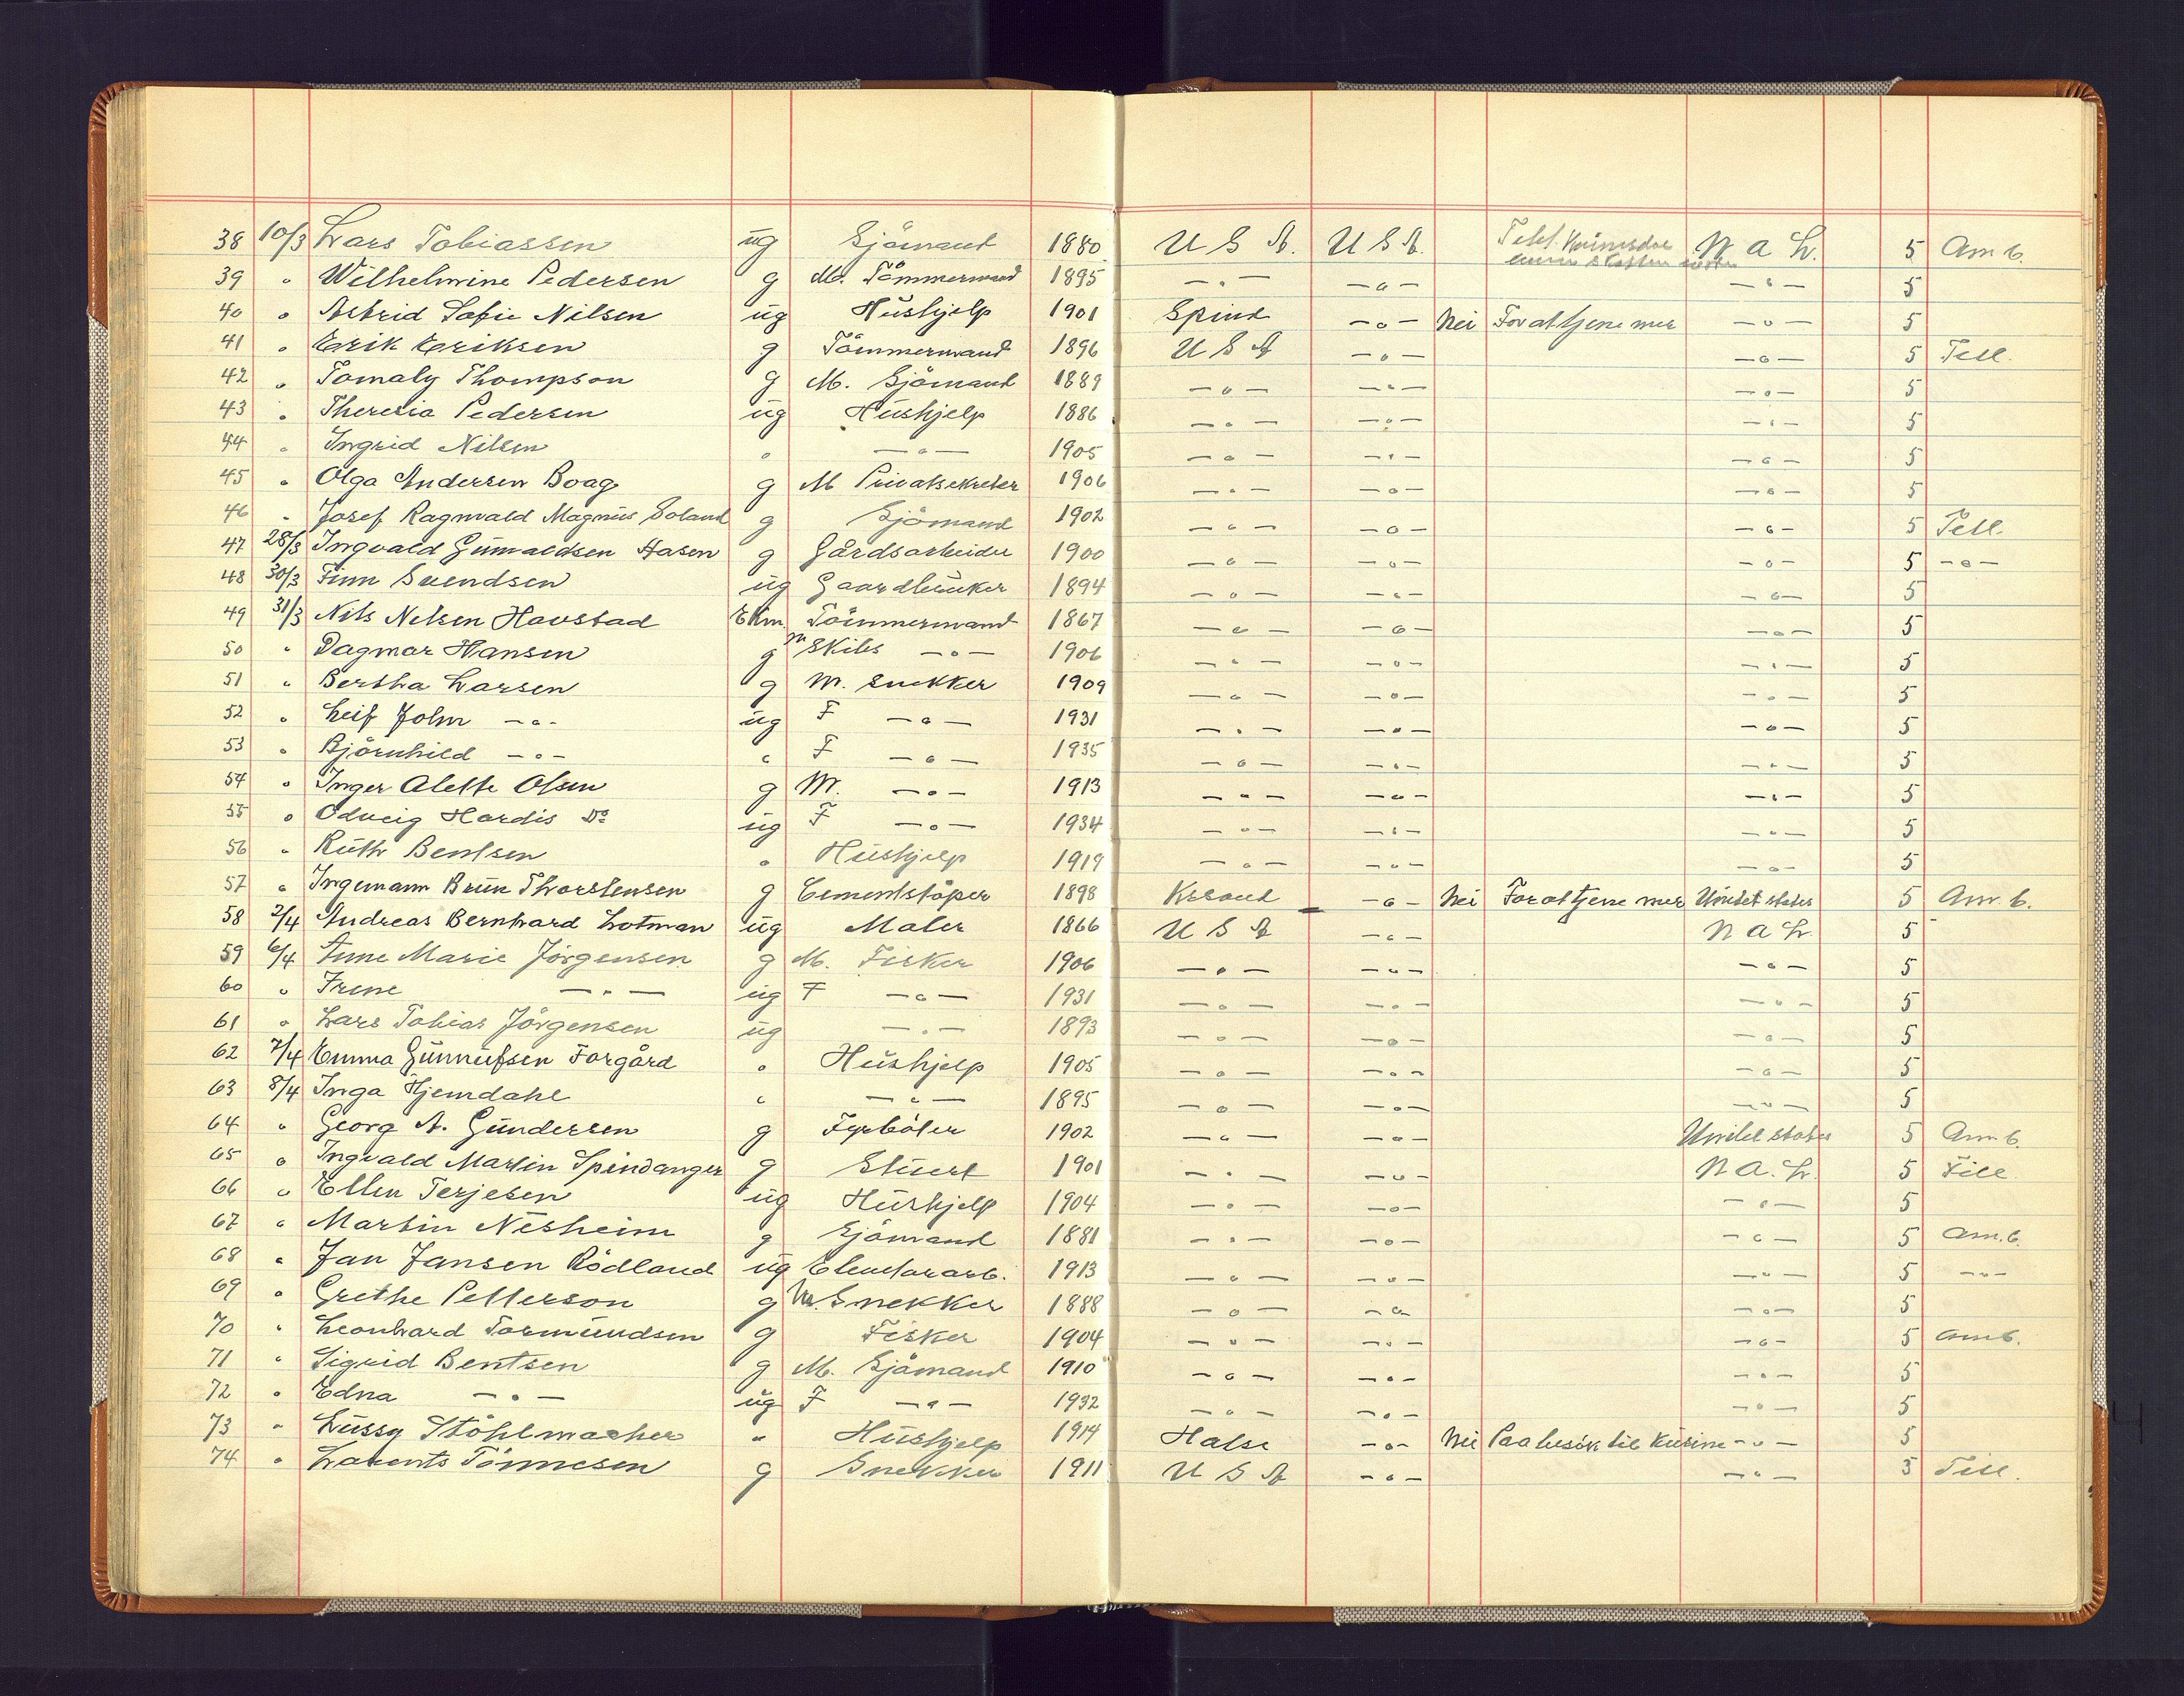 38 10/3 Lars Tobiassen ug Sjömand 1880 U S A. U S A. N A L. 5 Am b.
39 " Wilhelmine Pedersen g M. Tömmermand 1895 — " — — " — — " — 5
40 " Astrid Sofie Nilsen ug Hushjelp 1901 Spind — " — Nei For at tjene mer — " — 5
41 " Erik Eriksen g Tömmermand 1896 U S A — " — — " — 5 Tell.
42 " Tomaly Thompson g M. Sjömand 1889 — " — — " — — " — 5
43 " Theresia Pedersen ug Hushjelp 1886 — " — — " — — " — 5
44 " Ingrid Nilsen " — " — 1905 — " — — " — — " — 5
45 " Olga Andersen Boag g M Privatsekretær 1906 — " — — " — — " — 5
46 " Josef Ragnvald Magnus Soland g Sjömand 1902 — " — — " — — " — 5 Tell.
47 28/3 Ingvald Gunvaldsen Aasen g Gårdsarbeider 1900 — " — — " — — " — 5 — " —
48 30/3 Finn Svendsen ug Gaardbruker 1894 — " — — " — — " — 5
49 31/3 Nils Nelsen Havstad Ekm. Tömmermand 1867 — " — — " — — " — 5
50 " Dagmar Hansen g m Skibs — " — 1906 — " — — " — — " — 5
51 " Bertha Larsen g M. Snekker 1909 — " — — " — — " — 5
52 " Leif John — " — ug F — " — 1931 — " — — " — — " — 5
53 " Björnhild — " — " F — " — 1935 — " — — " — — " — 5
54 " Inger Alette Olsen g M. — " — 1913 — " — — " — — " — 5
55 " Odveig Hardis Do ug F — " — 1934 — " — — " — — " — 5
56 " Ruth Bentsen " Hushjelp 1919 — " — — " — — " — 5
57 " Ingemann Brun Thorstensen g Cementstöper 1898 Krsand — " — Nei For at tjene mer Unitet states 5 Am. b.
58 2/4 Andreas Bernhard Lotman ug Maler 1866 U S A — " — N A L. 5
59 6/4 Anne Marie Jörgensen g M. Fisker 1906 — " — — " — — " — 5
60 " Irene — " — ug F — " — 1931 — " — — " — — " — 5
61 " Lars Tobias Jörgensen ug — " — 1893 — " — — " — — " — 5
62 7/4 Emma Gunnufsen Forgård " Hushjelp 1905 — " — — " — — " — 5
63 8/4 Inga Hjemdahl " — " — 1895 — " — — " — — " — 5
64 " Georg A. Gundersen g Fyrböter 1902 — " — — " — Unitet states 5 Am b.
65 " Ingvald Martin Spindanger g Stuert 1901 — " — — " — N A. L. 5 Till
66 " Ellen Terjesen ug Hushjelp 1904 — " — — " — — " — 5
67 " Martin Nesheim g Sjömand 1881 — " — — " — — " — 5 Am. b.
68 " Jan Jansen Rödland ug Elevatorarb. 1913 — " — — " — — " — 5 — " —
69 " Grethe Petterson g M. Snekker 1888 — " — — " — — " — 5
70 " Leonhard Tormundsen g Fisker 1904 — " — — " — — " — 5 Am b.
71 " Sigrid Bentsen g M. Sjömand 1910 — " — — " — — " — 5
72 " Edna — " — ug F — " — 1932 — " — — " — — " — 5
73 " Lussy Stöhlmacher " Hushjelp 1914 Halse — " — Nei Paa besök til Kusine — " — 5
74 " Laurents Tönnesen g Snekker 1911 U S A — " — — " — 5 Till.